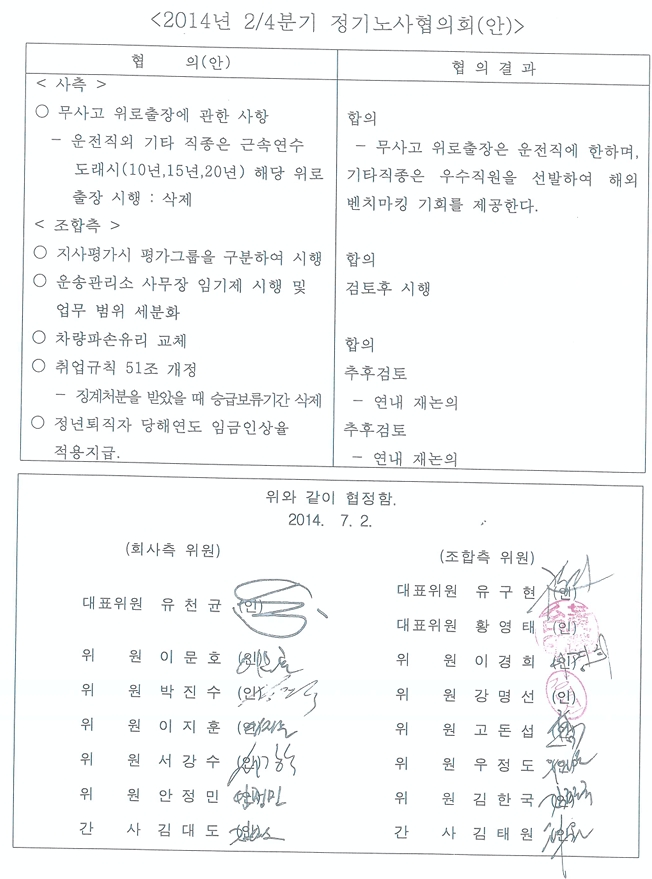 <2014년 2/4분기 정기노사협의회(안)>
협 의(안)
협 의 결 과
< 사측 >
○ 무사고 위로출장에 관한 사항
- 운전직외 기타 직종은 근속연수
도래시(10년,15년,20년) 해당 위로
출장 시행 : 삭제
합의
- 무사고 위로출장은 운전직에 한하며,
기타직종은 우수직원을 선발하여 해외
벤치마킹 기회를 제공한다.
< 조합측 >
○ 지사평가시 평가그룹을 구분하여 시행
합의
○ 운송관리소 사무장 임기제 시행 및
업무 범위 세분화
검토후 시행
○ 차량파손유리 교체
합의
○ 취업규칙 51조 개정
- 징계처분을 받았을 때 승급보류기간 삭제
추후검토
- 연내 재논의
○ 정년퇴직자 당해연도 임금인상율
적용지급.
추후검토
- 연내 재논의
위와 같이 협정함.
2014. 7. 2.
(회사측 위원)
대표위원 유천균 (인)
위 원 이문호 (인)
위 원 박진수 (인)
위 원 이지훈 (인)
위 원 서강수 (인)
위 원 안정민 (인)
간 사 김대도 (인)
(조합측 위원)
대표위원 유구현 (인)
대표위원 황영태 (인)
위 원 이경희 (인)
위 원 강명선 (인)
위 원 고돈섭 (인)
위 원 우정도 (인)
위 원 김한국 (인)
간 사 김태원 (인)